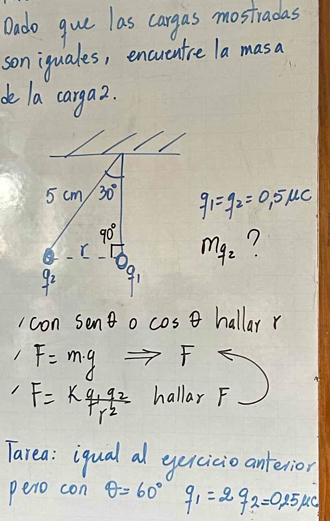 Dado que las cargas mostradas
son iguales, encuentre la masa
de la carga 2.
5 cm 30°
q₁=q₂=0,5μc
90°
r
mq₂ ?
q₂ q₁
con sen θ o cos θ hallar r
F=m.g ⟹ F
F= K q₁ q₂ / r² hallar F
Tarea: igual al ejercicio anterior
pero con θ=60° q₁=2q₂=0,25μc